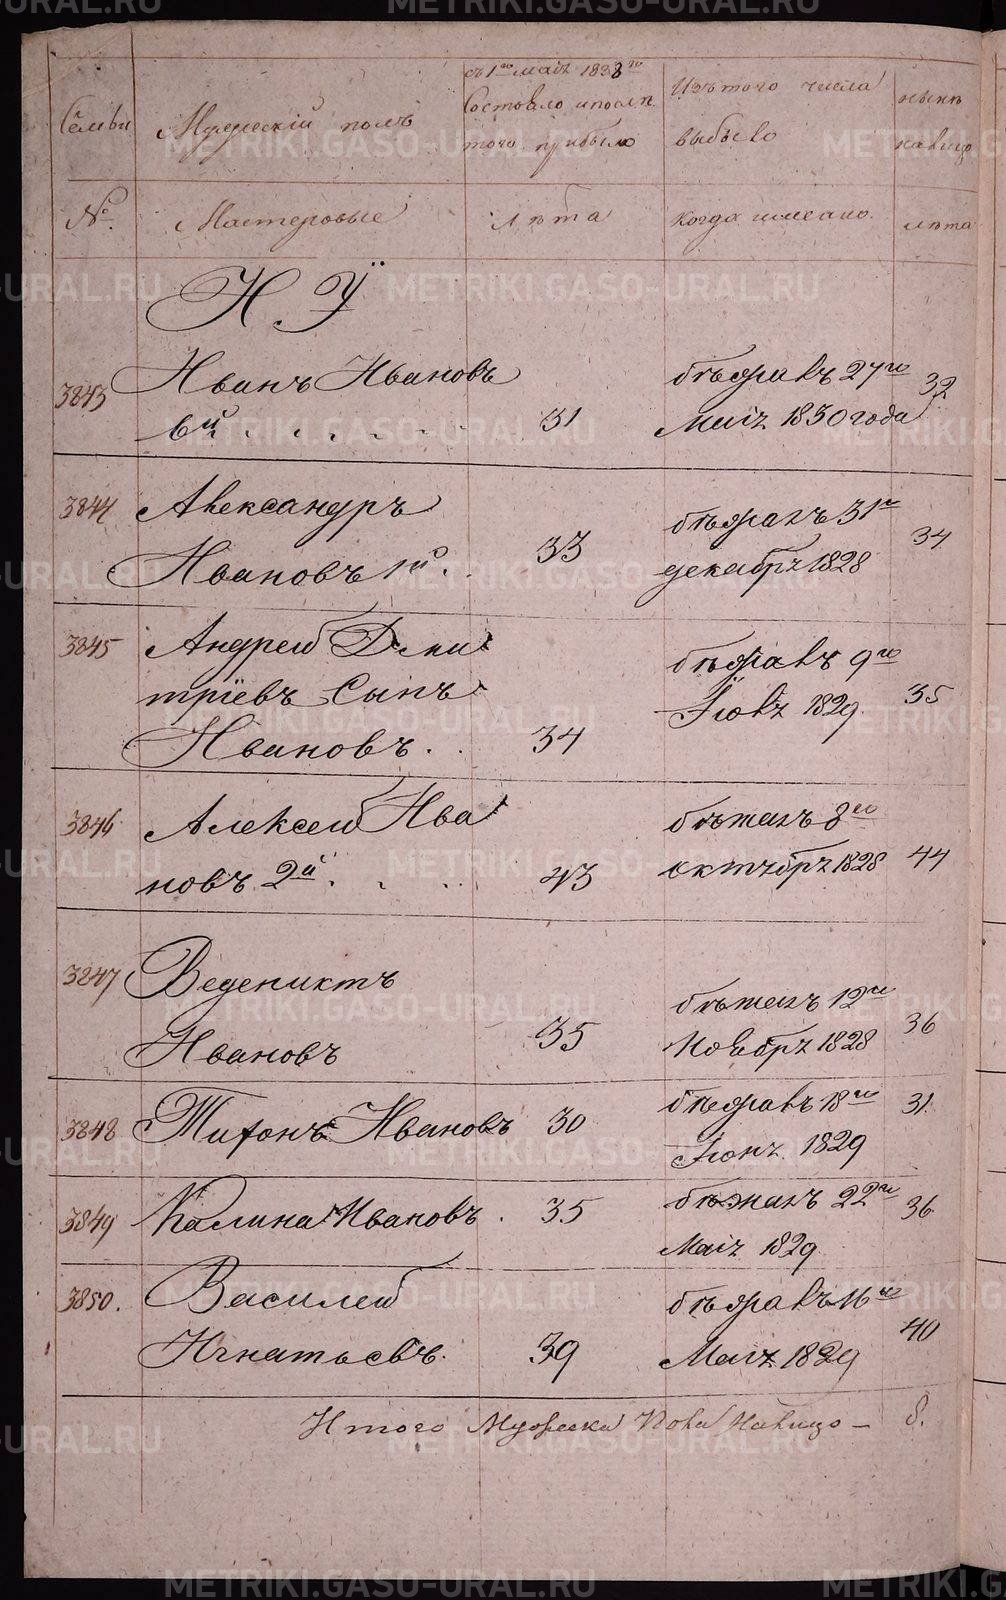 METRIKI.GASO-URAL.RU
Семьи
Мужескій полъ
съ 1го маія 1828го
Состояло и послѣ
того прибыло
Изъ того числа
выбыло
нынѣ
налицо
№
Мастеровые
Лѣта
Когда именно.
лѣта
И. Ӱ
3843
Иванъ Ивановъ
6й
31
бѣжалъ 27го
Маія 1830 года
32
3844
Александръ
Ивановъ 1й.
33
бѣжалъ 31го
декабря 1828
34
3845
Андрей Дми
тріевъ Сынъ
Ивановъ.
34
бѣжалъ 9го
Іюля 1829.
35
3846
Алексей Ива
новъ 2й
43
бѣжалъ 8го
октября 1828
44
3847
Веденихтъ
Ивановъ
35
бѣжалъ 12го
Ноября 1828
36
3848
Тихонъ Ивановъ
30
бѣжалъ 18го
Іюня 1829
31.
3849
Калина Ивановъ.
35
бѣжалъ 22го
Маія 1829
36
3850.
Василей
Игнатьевъ.
39
бѣжалъ 16го
Маія 1829
40
Итого Мужеска Пола Налицо — 8.